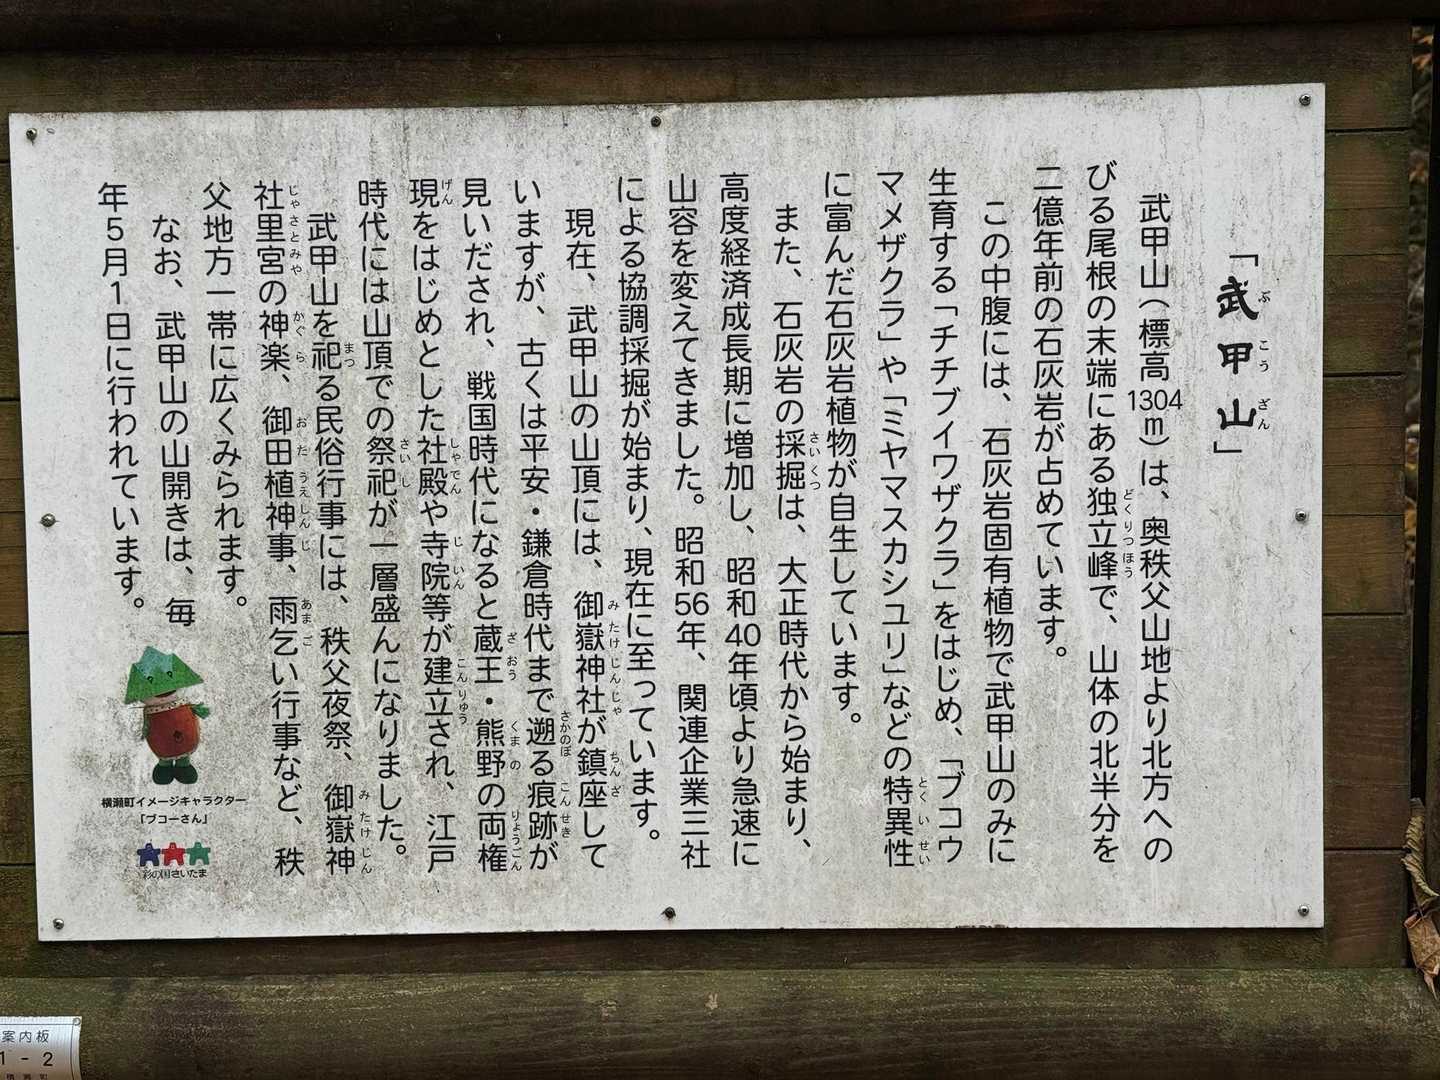 「武甲山」
ぶこうざん
武甲山(標高1304m)は、奥秩父山地より北方への
びる尾根の末端にある独立峰で、山体の北半分を
どくりつほう
二億年前の石灰岩が占めています。
この中腹には、石灰岩固有植物で武甲山のみに
生育する「チチブイワザクラ」をはじめ、「ブコウ
マメザクラ」や「ミヤマスカシユリ」などの特異性
とくいせい
に富んだ石灰岩植物が自生しています。
また、石灰岩の採掘は、大正時代から始まり、
さいくつ
高度経済成長期に増加し、昭和40年頃より急速に
山容を変えてきました。昭和56年、関連企業三社
による協調採掘が始まり、現在に至っています。
現在、武甲山の山頂には、御嶽神社が鎮座して
みたけじんじゃ
ちんざ
いますが、古くは平安・鎌倉時代まで遡る痕跡が
さかのぼ
こんせき
見いだされ、戦国時代になると蔵王・熊野の両権
ざおう
くまの
りょうごん
現をはじめとした社殿や寺院等が建立され、江戸
げん
しゃでん
じいん
こんりゅう
時代には山頂での祭祀が一層盛んになりました。
さいし
武甲山を祀る民俗行事には、秩父夜祭、御嶽神
まつ
みたけじん
社里宮の神楽、御田植神事、雨乞い行事など、秩
じゃさとみや
かぐら
おたうえしんじ
あまご
父地方一帯に広くみられます。
なお、武甲山の山開きは、毎
年5月1日に行われています。
横瀬町イメージキャラクター
「ブコーさん」
彩の国さいたま
案内板
1-2